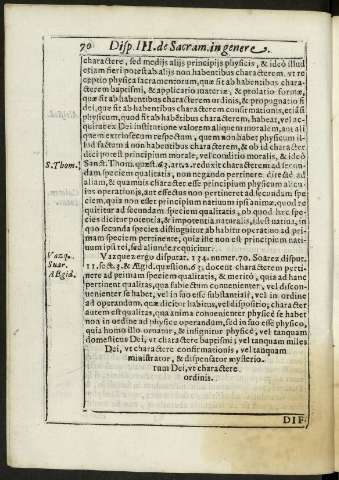 70 Disp. III. de Sacram. in genere.
charactere, sed medijs alijs principijs physicis, & ideò illud
etiam fieri potest ab alijs non habentibus characterem, vt re
ceptio physica sacramentorum, quæ sit ab habentibus chara-
cterem baptismi, & applicatio materiæ, & prolatio formæ,
quæ sit ab habentibus characterem ordinis, & propugnatio fi
dei, quæ sit ab habentibus characterem confirmationis, etiã si
physicum, quod sit ab habẽtibus characterem, habeat, vel ac-
quirat ex Dei institutione valorem aliquem moralem, aut ali
quem extrinsecum respectum, quem non habet physicum il-
lud factum à non habentibus characterem, & ob id character
dici potest principium morale, vel conditio moralis, & ideò
S. Thom. Sanct. Thom. quæst. 63. art. 2. reduxit characterem ad secun-
dam speciem qualitatis, non negando pertinere directè ad
aliam, & quamuis character esset principium physicum alicu-
ius operationis, aut effectus non pertineret ad secundam spe
ciem, quia non esset principium natiuum ipsi animæ, quod re
quiritur ad secundam speciem qualitatis, ob quod hæc spe-
cies dicitur potentia, & impotentia naturalis, idest natiua, in
quo secunda species distinguitur ab habitu operatiuo ad pri-
mam speciem pertinente, quia ille non est principium nati-
uum ipsi rei, sed aliunde requiritur.
Vazqu. Vazquez ergo disputat. 134. numer. 70. Soarez disput.
Suar. 11. sect. 3. & Ægid. quæstion. 63. docent characterem perti-
AEgid. nere ad primam speciem qualitatis, & meritò, quia ad hanc
pertinent qualitates, quæ subiectum conuenienter, vel discon-
uenienter se habet, vel in suo esse substantiali, vel in ordine
ad operandum, quæ dicitur habitus, vel dispositio; character
autem est qualitas, qua anima conuenienter physicè se habet
non in ordine ad physicè operandum, sed in suo esse physico,
quia homo illo ornatur, & insignitur physicè, vel tanquam
domesticus Dei, vt charactere baptismi; vel tanquam miles
Dei, vt charactere confirmationis, vel tanquam
ministrator, & dispensator mysterio-
rum Dei, vt charactere
ordinis.
DIF-